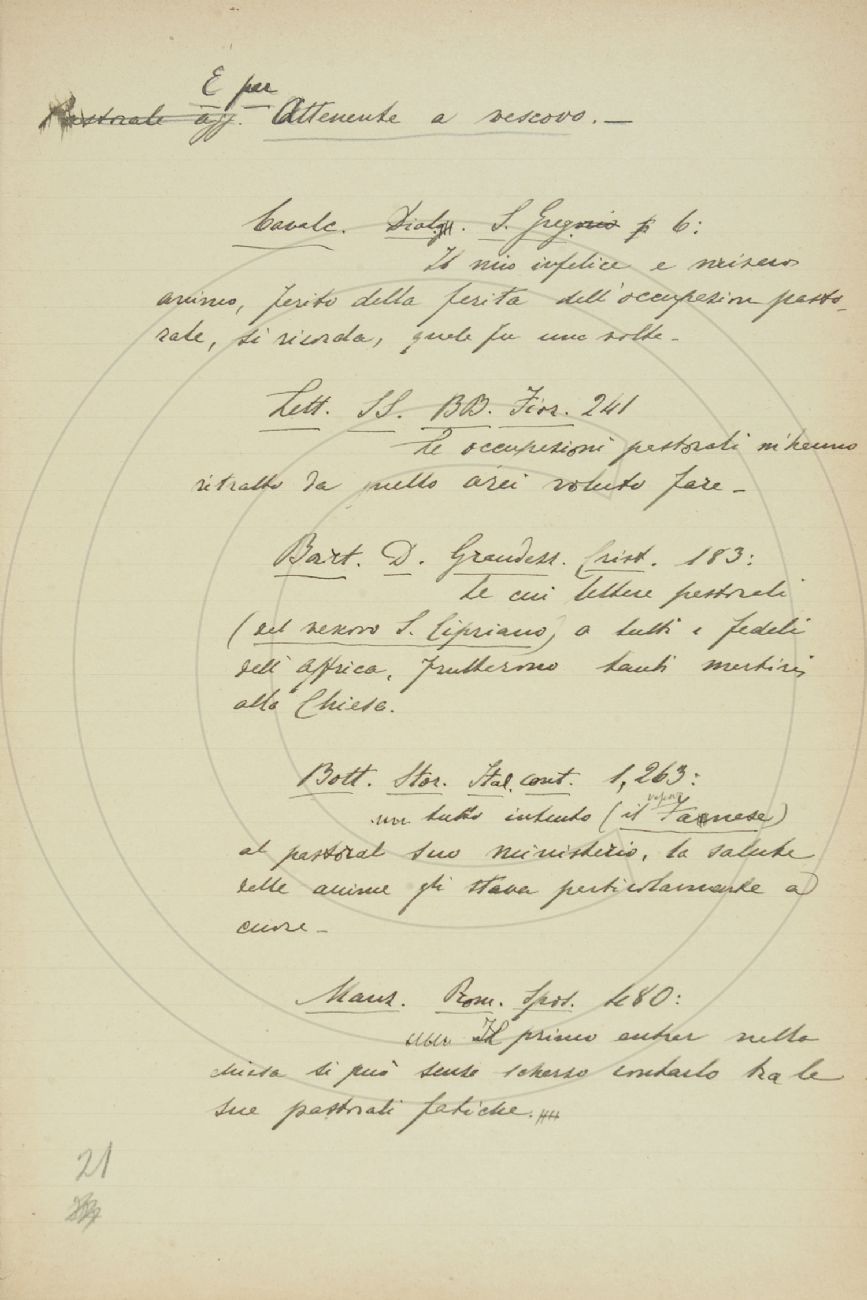 E per
Pastorale agg. Attenente a vescovo. —
Cavalc. Dialog. S. Gregorio 6:
Il mio infelice e misero
animo, ferito della ferita dell'occupazion pasto-
rale, si ricorda, quale fu una volta -
Lett. SS. BB. Fior. 241
Le occupazioni pastorali m'hanno
ritratto da quello arei voluto fare -
Bart. D. Grandezz. Crist. 183:
Le cui lettere pastorali
(del vescovo S. Cipriano) a tutti i fedeli
dell'Affrica, fruttarono tanti martiri
alla Chiesa.
Bott. Stor. Ital. cont. 1, 263:
tutto intento (il Farnese)
al pastoral suo ministerio, la salute
delle anime gli stava particolarmente a
cuore -
Manz. Prom. Spos. 480:
Il primo entrar nella
chiesa si può senza scherzo contarlo tra le
sue pastorali fatiche.
21